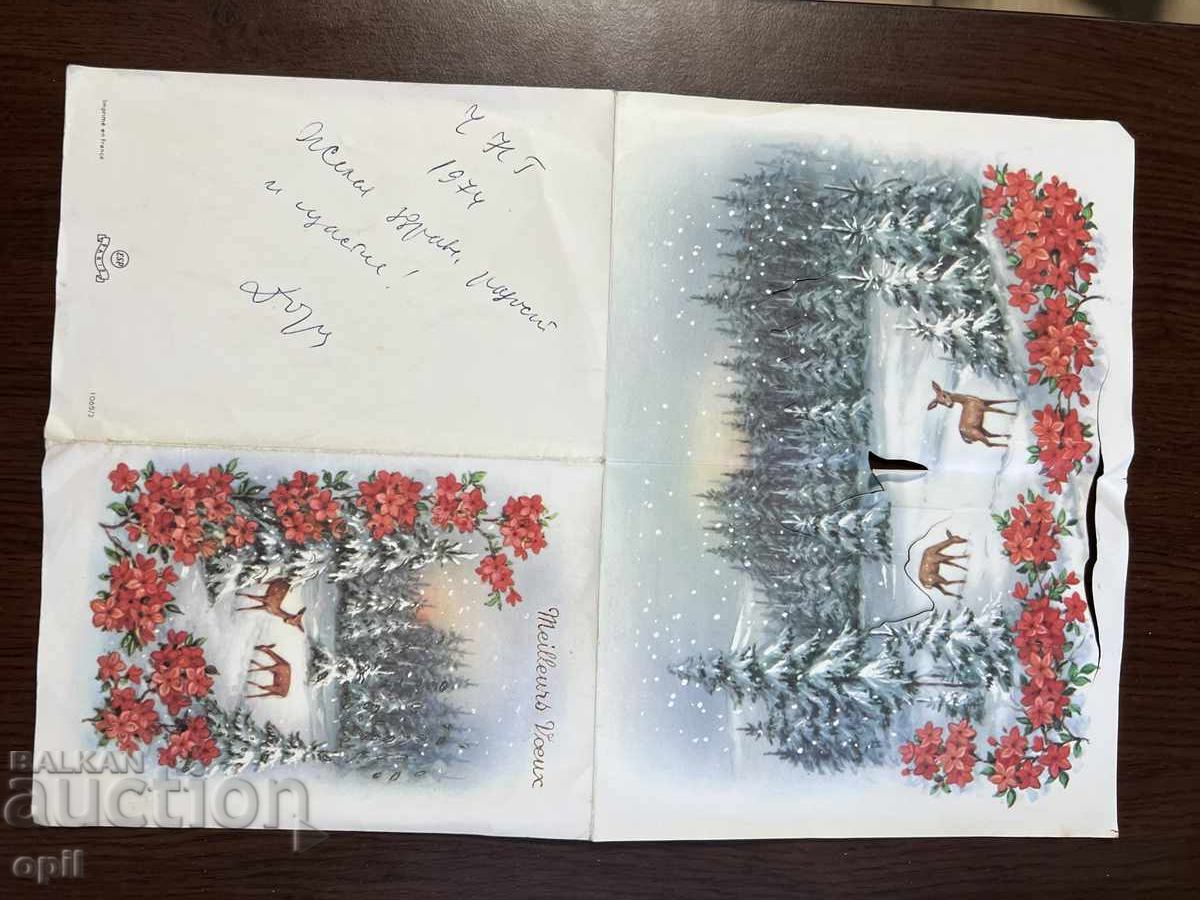 Ч Н Г
1974
Желая здраве, радост
и щастие!
Imprimé en France
ESPI
1065/2
Meilleurs Voeux
BALKAN
auction
opil